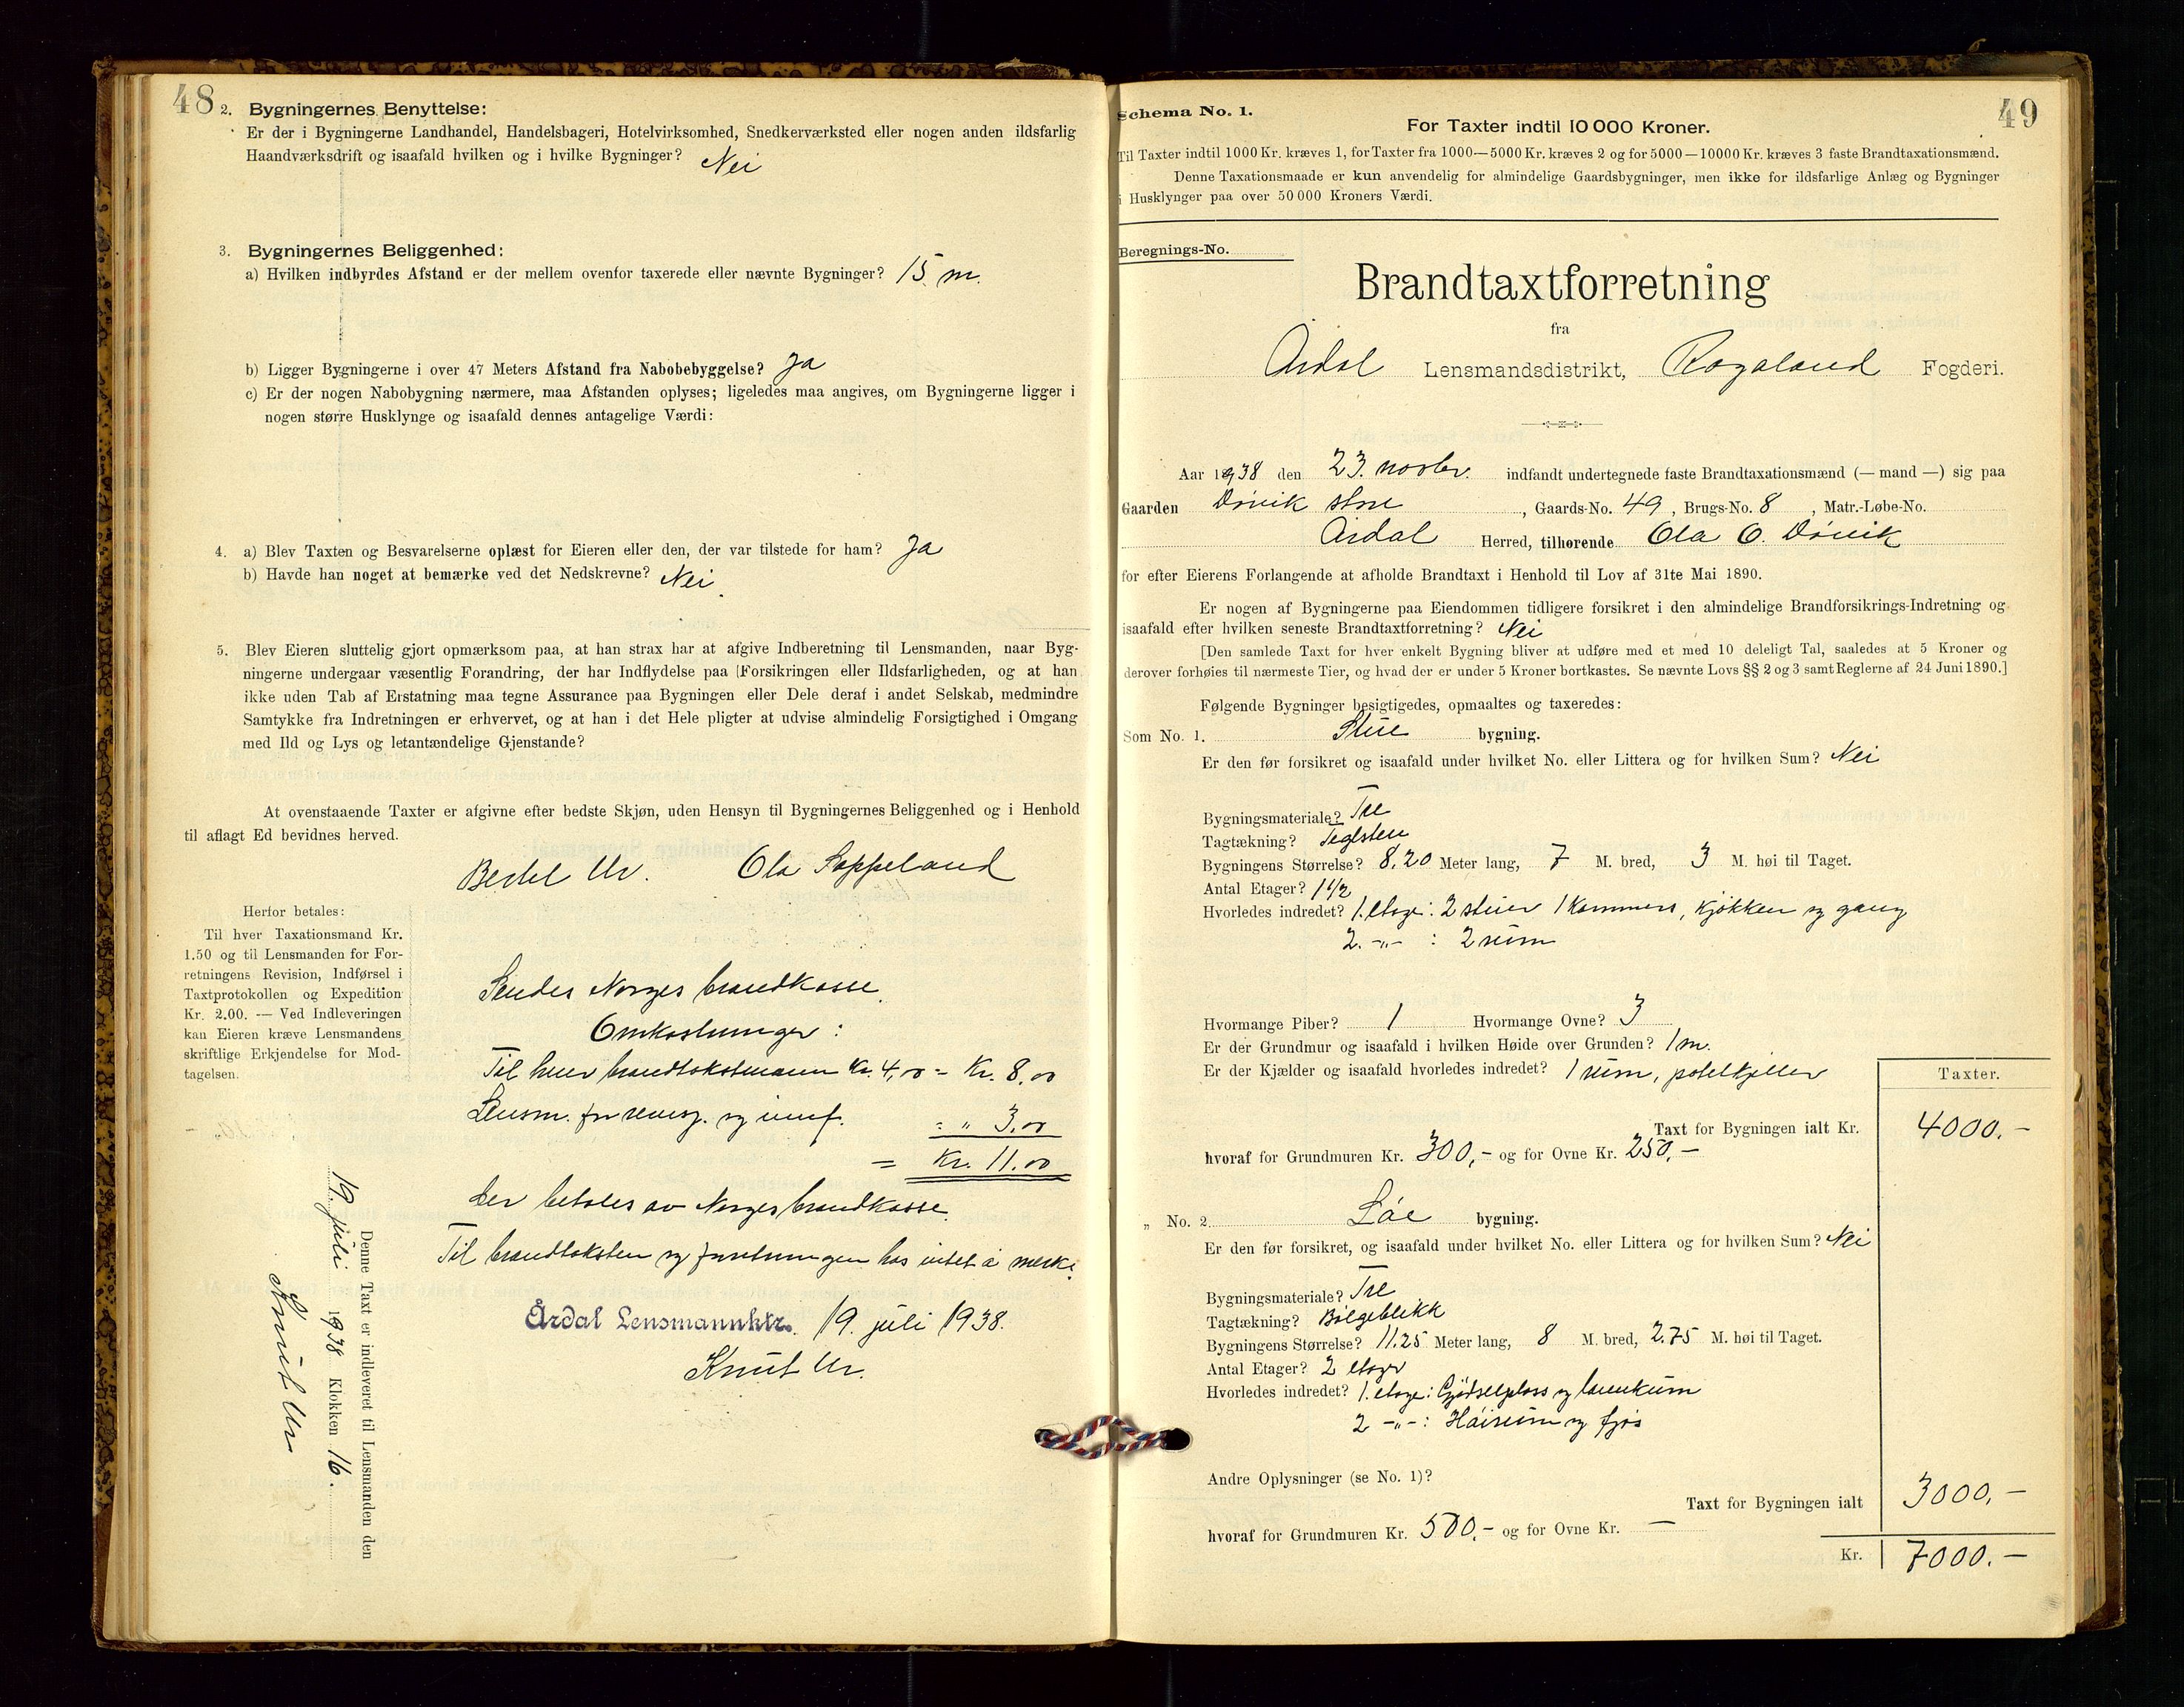 48
2. Bygningernes Benyttelse:
Er der i Bygningerne Landhandel, Handelsbageri, Hotelvirksomhed, Snedkerværksted eller nogen anden ildsfarlig
Haandværksdrift og isaafald hvilken og i hvilke Bygninger? Nei
3. Bygningernes Beliggenhed:
a) Hvilken indbyrdes Afstand er der mellem ovenfor taxerede eller nævnte Bygninger? 15 m.
b) Ligger Bygningerne i over 47 Meters Afstand fra Nabobebyggelse? Ja
c) Er der nogen Nabobygning nærmere, maa Afstanden oplyses; ligeledes maa angives, om Bygningerne ligger i
nogen større Husklynge og isaafald dennes antagelige Værdi:
4. a) Blev Taxten og Besvarelserne oplæst for Eieren eller den, der var tilstede for ham? Ja
b) Havde han noget at bemærke ved det Nedskrevne? Nei.
5. Blev Eieren sluttelig gjort opmærksom paa, at han strax har at afgive Indberetning til Lensmanden, naar Byg-
ningerne undergaar væsentlig Forandring, der har Indflydelse paa Forsikringen eller Ildsfarligheden, og at han
ikke uden Tab af Erstatning maa tegne Assurance paa Bygningen eller Dele deraf i andet Selskab, medmindre
Samtykke fra Indretningen er erhvervet, og at han i det Hele pligter at udvise almindelig Forsigtighed i Omgang
med Ild og Lys og letantændelige Gjenstande?
At ovenstaaende Taxter er afgivne efter bedste Skjøn, uden Hensyn til Bygningernes Beliggenhed og i Henhold
til aflagt Ed bevidnes herved.
Bertel Ur. Ola Soppeland
Herfor betales:
Til hver Taxationsmand Kr.
1.50 og til Lensmanden for For-
retningens Revision, Indførsel i
Taxtprotokollen og Expedition
Kr. 2.00. — Ved Indleveringen
kan Eieren kræve Lensmandens
skriftlige Erkjendelse for Mod-
tagelsen.
Sendes Norges brandkasse.
Omkostninger:
Til hver brandtakstmann Kr. 4,00 = Kr. 8,00
Lensm. for revisj. og innf. = " 3,00
= Kr. 11.00
der betales av Norges brandkasse.
Til brandtaksten og forretningen has intet å merke.
Årdal Lensmannktr. 19. juli 1938.
Knut Ur.
Denne Taxt er indleveret til Lensmanden den
19. juli 1938 Klokken 16.
Knut Ur
49
Schema No. 1.
For Taxter indtil 10 000 Kroner.
Til Taxter indtil 1000 Kr. kræves 1, for Taxter fra 1000—5000 Kr. kræves 2 og for 5000—10000 Kr. kræves 3 faste Brandtaxationsmænd.
Denne Taxationsmaade er kun anvendelig for almindelige Gaardsbygninger, men ikke for ildsfarlige Anlæg og Bygninger
i Husklynger paa over 50 000 Kroners Værdi.
Beregnings-No.
Brandtaxtforretning
fra
Årdal Lensmandsdistrikt, Rogaland Fogderi.
Aar 1938 den 23. novbr. indfandt undertegnede faste Brandtaxationsmænd (— mand —) sig paa
Gaarden Døvik store, Gaards-No. 49, Brugs-No. 8, Matr.-Løbe-No.
Årdal Herred, tilhørende Ola O. Døvik
for efter Eierens Forlangende at afholde Brandtaxt i Henhold til Lov af 31te Mai 1890.
Er nogen af Bygningerne paa Eiendommen tidligere forsikret i den almindelige Brandforsikrings-Indretning og
isaafald efter hvilken seneste Brandtaxtforretning? Nei
[Den samlede Taxt for hver enkelt Bygning bliver at udføre med et med 10 deleligt Tal, saaledes at 5 Kroner og
derover forhøies til nærmeste Tier, og hvad der er under 5 Kroner bortkastes. Se nævnte Lovs §§ 2 og 3 samt Reglerne af 24 Juni 1890.]
Følgende Bygninger besigtigedes, opmaaltes og taxeredes:
Som No. 1. Stue bygning.
Er den før forsikret og isaafald under hvilket No. eller Littera og for hvilken Sum? Nei
Bygningsmateriale? Tre
Tagtækning? Teglsten
Bygningens Størrelse? 8,20 Meter lang, 7 M. bred, 3 M. høi til Taget.
Antal Etager? 1 1/2
Hvorledes indredet? 1. etage: 2 stuer 1 kammers, kjøkken og gang
2. -"- : 2 rum
Hvormange Piber? 1 Hvormange Ovne? 3
Er der Grundmur og isaafald i hvilken Høide over Grunden? 1 m.
Er der Kjælder og isaafald hvorledes indredet? 1 rum, potetkjeller
Taxter.
Taxt for Bygningen ialt Kr. 4000.-
hvoraf for Grundmuren Kr. 300,- og for Ovne Kr. 250,-
" No. 2 Løe bygning.
Er den før forsikret, og isaafald under hvilket No. eller Littera og for hvilken Sum? Nei
Bygningsmateriale? Tre
Tagtækning? Bølgeblikk
Bygningens Størrelse? 11.25 Meter lang, 8 M. bred, 2.75 M. høi til Taget.
Antal Etager? 2 etager
Hvorledes indredet? 1. etage: Gjødselplass og
2 -"- : Høirum og fjøs
Andre Oplysninger (se No. 1)?
Taxt for Bygningen ialt 3000,-
hvoraf for Grundmuren Kr. 500.- og for Ovne Kr. —
Kr. 7000.-